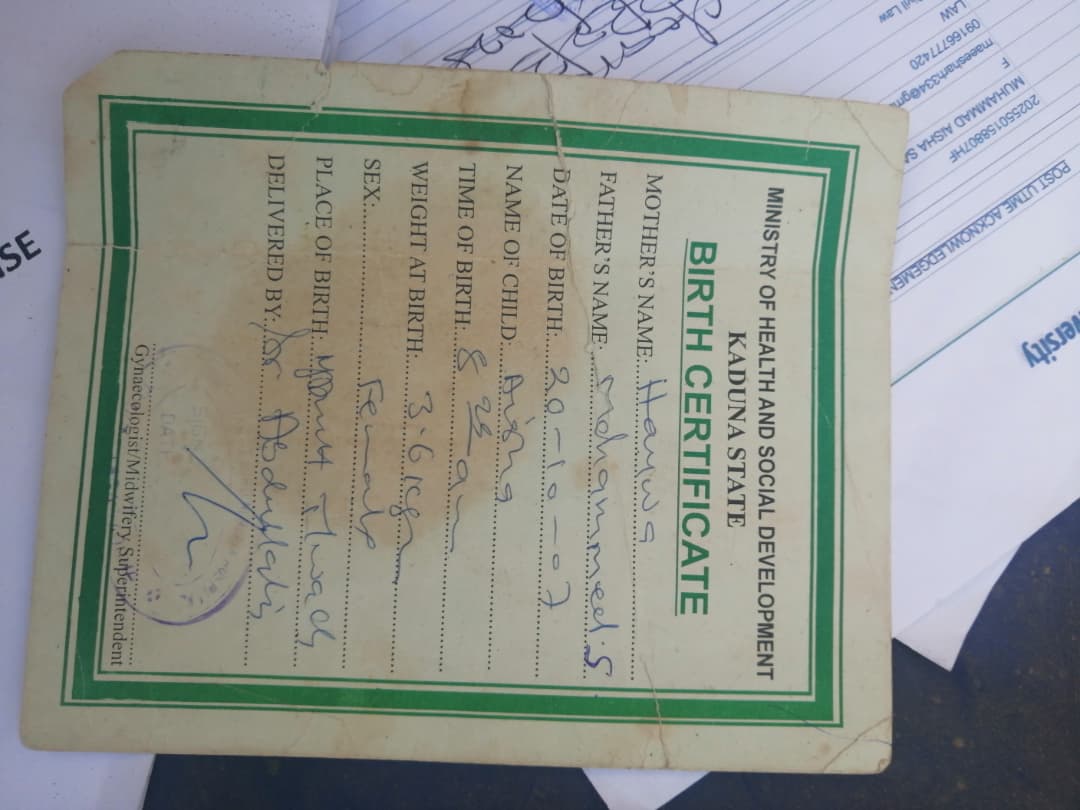 MINISTRY OF HEALTH AND SOCIAL DEVELOPMENT
KADUNA STATE
BIRTH CERTIFICATE
MOTHER'S NAME: Hauwa
FATHER'S NAME: Mohammed.S
DATE OF BIRTH: 20-10-07
NAME OF CHILD: Aisha
TIME OF BIRTH: 8 am
WEIGHT AT BIRTH: 3.6kg
SEX: Female
PLACE OF BIRTH:
DELIVERED BY: Abdullahi
Gynaecologist/Midwifery Superintendent
POST UTME ACKNOWLEDGEMEN
202550158807HF
MUHAMMAD AISHA SA
F
maeesharh334@gm
09166777420
LAW
ivil Law
versity
SE